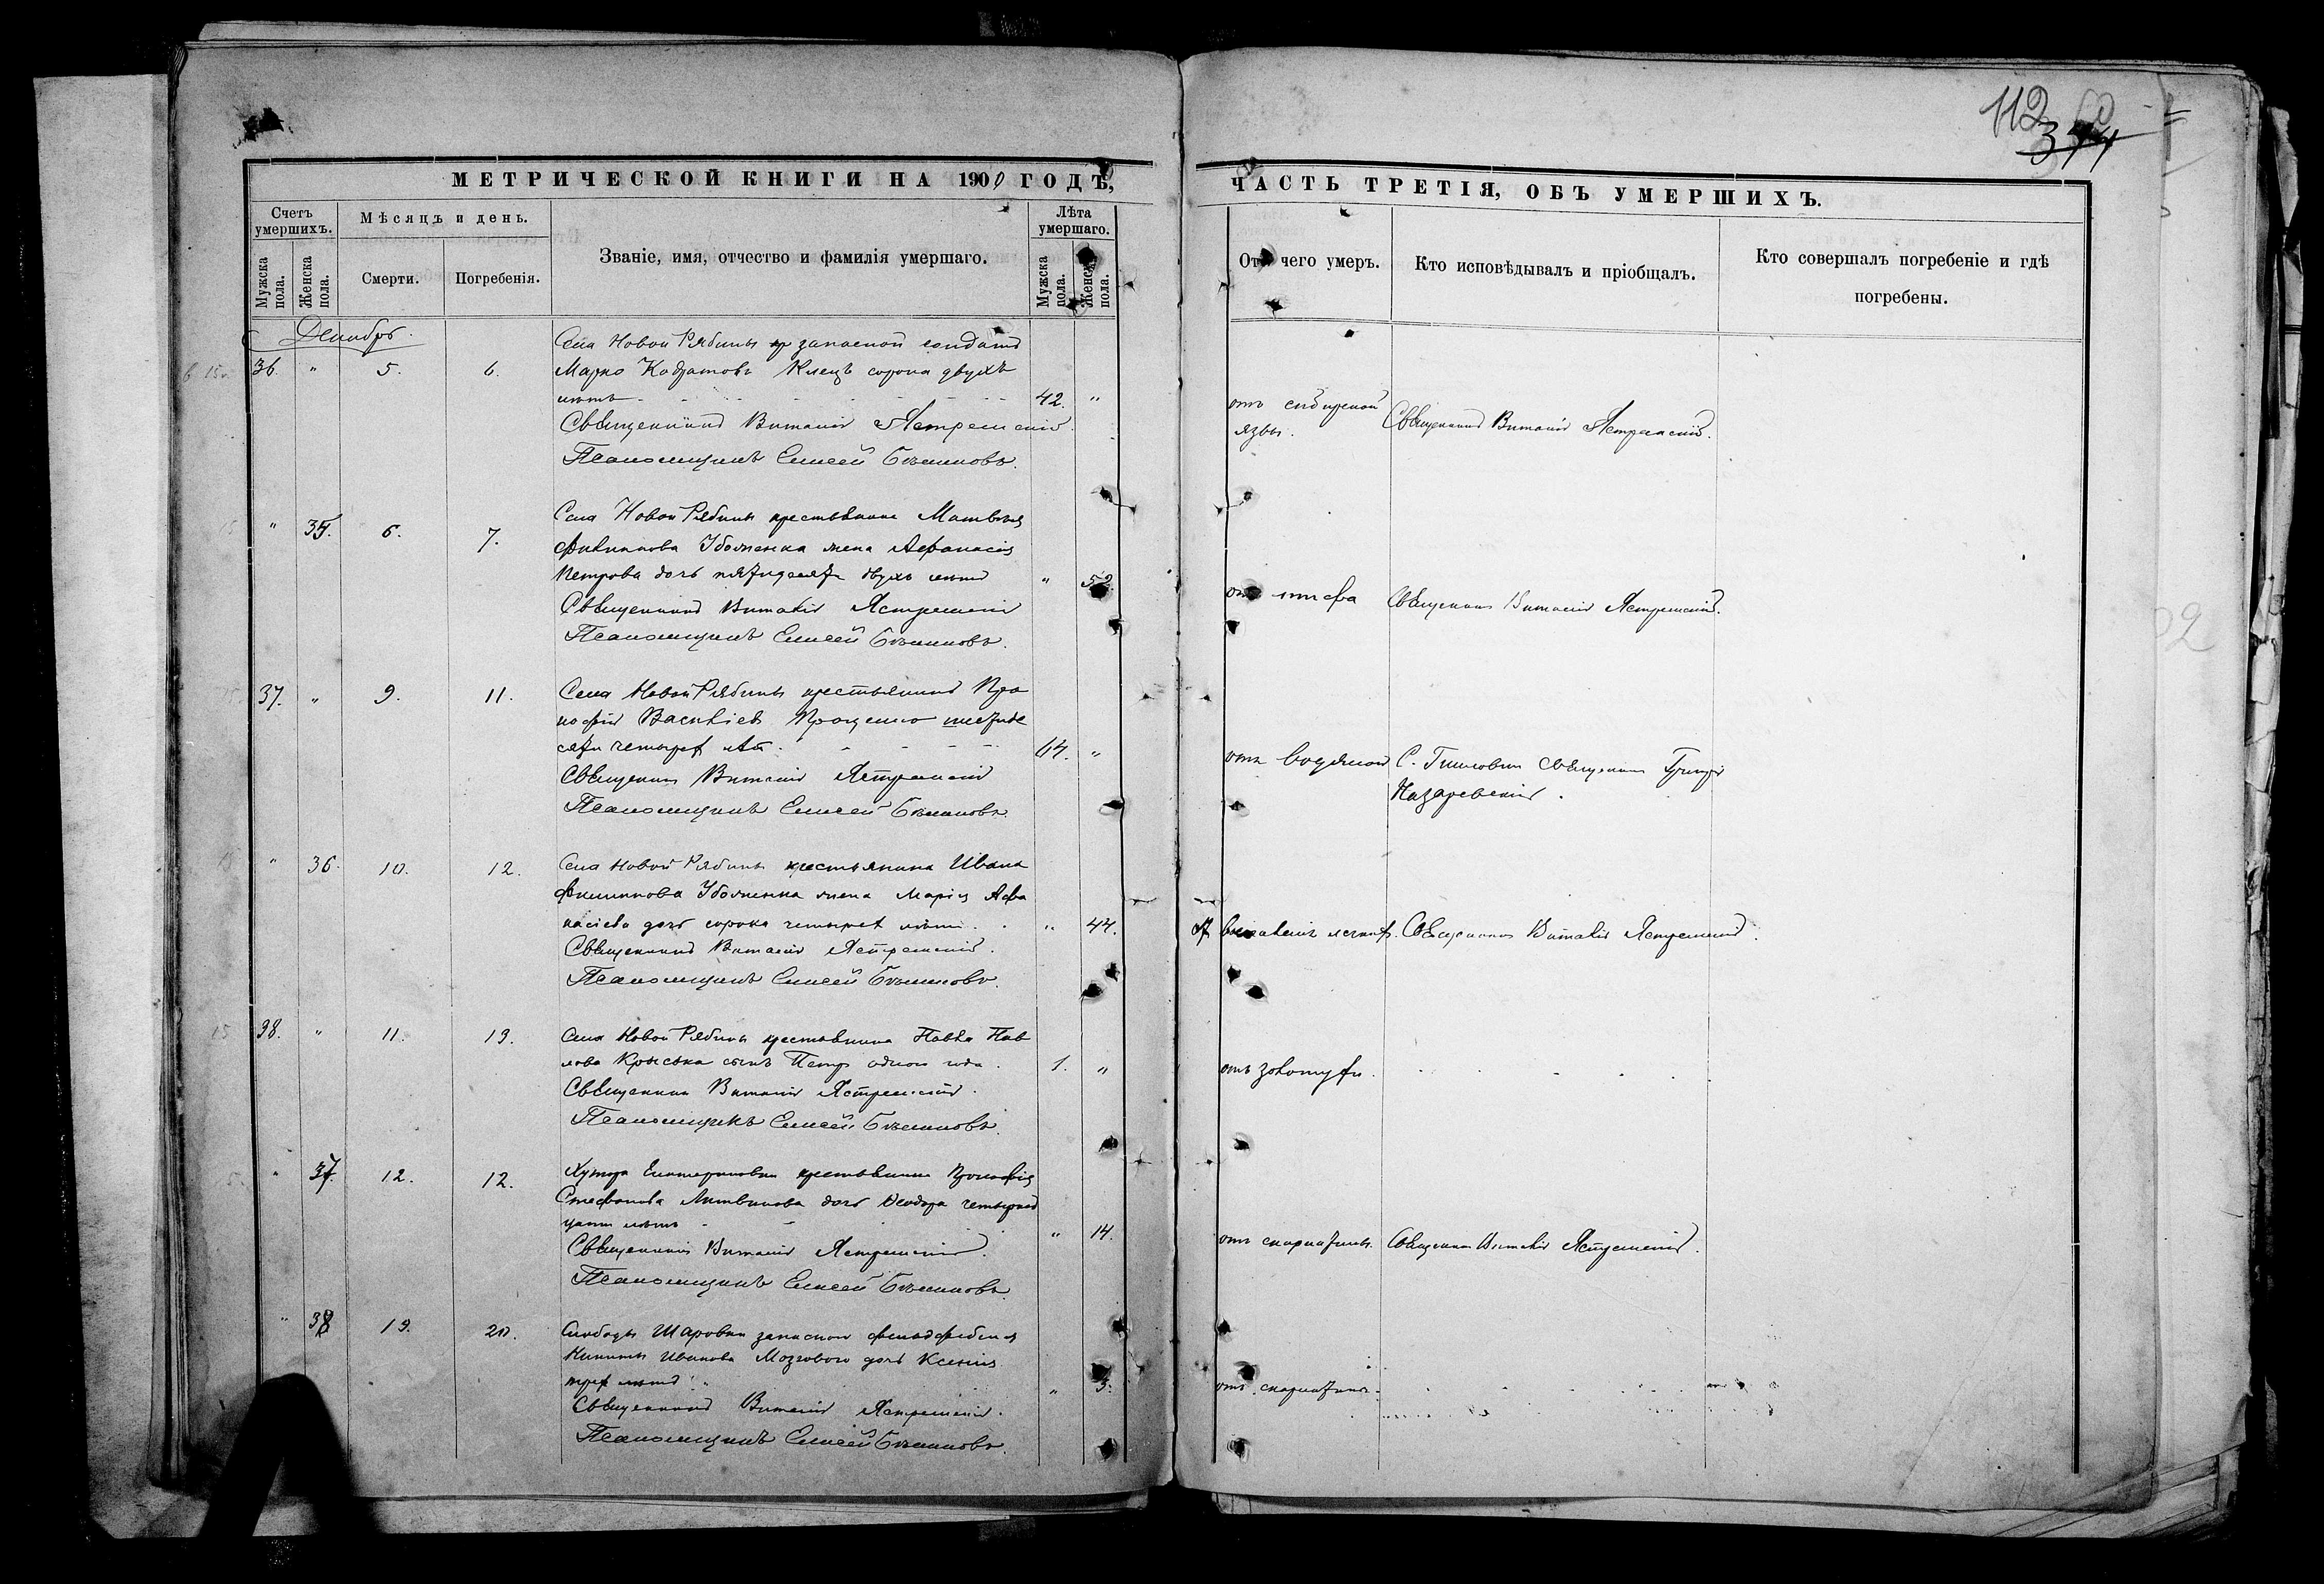 112
374
МЕТРИЧЕСКОЙ КНИГИ НА 1900 ГОДЪ,
ЧАСТЬ ТРЕТІЯ, ОБЪ УМЕРШИХЪ.
Счетъ умершихъ.
Мѣсяцъ и день.
Званіе, имя, отчество и фамилія умершаго.
Лѣта умершаго.
Мужска пола.
Женска пола.
Смерти.
Погребенія.
Мужска пола.
Женска пола.
Отъ чего умеръ.
Кто исповѣдывалъ и пріобщалъ.
Кто совершалъ погребеніе и гдѣ
погребены.
Декабрь.
36. " 5. 6.
Села Новой Рябины запасной солдатъ
Марко Кодратовъ Клецъ сорока двухъ
лѣтъ 42. "
Священникъ Виталій Ястремскій
Псаломщикъ Елисей
отъ сибирской
язвы. Священникъ Виталій Ястремскій.
" 35. 6. 7.
Села Новой Рябины крестьянина Матвѣя
Филиппова жена Афанасія
Петрова дочь пятидесяти двухъ лѣтъ " 52
Священникъ Виталій Ястремскій
Псаломщикъ Елисей
отъ тифа Священникъ Виталій Ястремскій.
37. " 9. 11.
Села Новой Рябины крестьянинъ Про
кофій Васильевъ Проценко шестьде
сяти четырех лѣт. 64. "
Священникъ Виталій Ястремскій
Псаломщикъ Елисей
отъ водяной С. Священникъ Григорій
Назаревскій.
" 36. 10. 12.
Села Новой Рябины крестьянина Ивана
Филиппова жена Марія Афа
насіева дочь сорока четырех лѣтъ. " 44.
Священникъ Виталій Ястремскій.
Псаломщикъ Елисей
От легких. Священникъ Виталій Ястремскій.
38. " 11. 13.
Села Новой Рябины крестьянина Павла Пав
лова сынъ Петръ одного года. 1. "
Священникъ Виталій Ястремскій.
Псаломщикъ Елисей
отъ золотухи.
" 37. 12. 12.
Хутора Екатериновки крестьянина Прокофія
Стефанова Литвинова дочь Ѳеодора четырнад
цати лѣтъ " 14.
Священникъ Виталій Ястремскій.
Псаломщикъ Елисей
отъ скарлатины. Священникъ Виталій Ястремскій.
" 38 19. 20.
Слободы Шаровки запасного фельдфебеля
Никиты Иванова Мозгового дочь Ксенія
трех лѣтъ " 3.
Священникъ Виталій Ястремскій.
Псаломщикъ Елисей
отъ скарлатины.